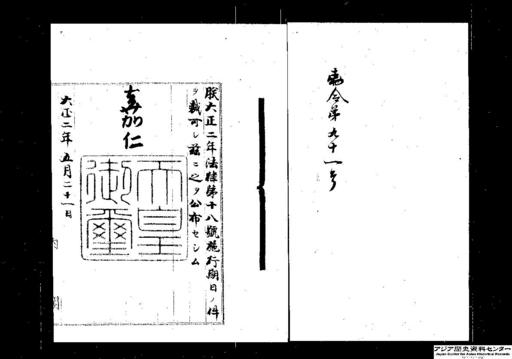 勅令第九十一号
朕大正二年法律第十八號施行期日ノ件
ヲ裁可シ茲ニ之ヲ公布セシム
嘉仁
天皇
御璽
大正二年五月二十一日
内閣
アジア歴史資料センター
Japan Center for Asian Historical Records